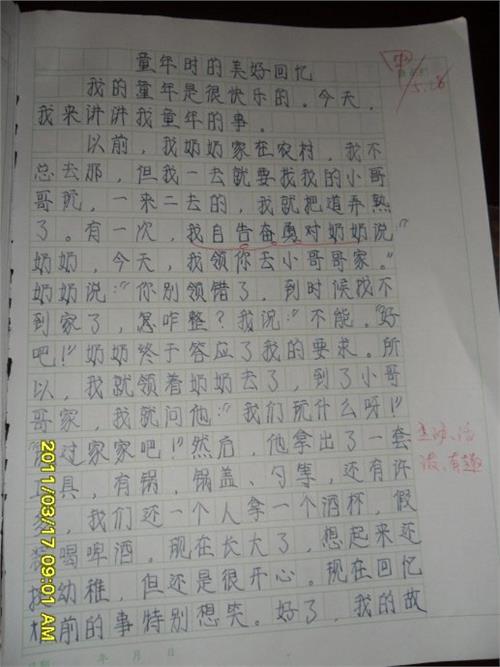 童年时的美好回忆
我的童年是很快乐的。今天，
我来讲讲我童年的事。
以前，我奶奶家在农村，我不
总去那，但我一去就要找我的小哥
哥玩，一来二去的，我就把道弄熟
了。有一次，我自告奋勇对奶奶说：“
奶奶，今天，我领你去小哥哥家。”
奶奶说：“你别领错了，到时候找不
到家了，怎咋整？我说：“不能。”“好
吧！”奶奶终于答应了我的要求。所
以，我就领着奶奶去了，到了小哥
哥家，我就问他：“我们玩什么呀！”
过家家吧！”然后，他拿出了一套
具，有锅，锅盖、勺等，还有许
，我们还一个人拿一个酒杯，假
喝啤酒。现在长大了，想起来还
幼稚，但还是很开心。现在回忆
前的事特别想笑。好了，我的故
年 月 日
5.28
泼、有趣
2011/03/17 09:01 AM